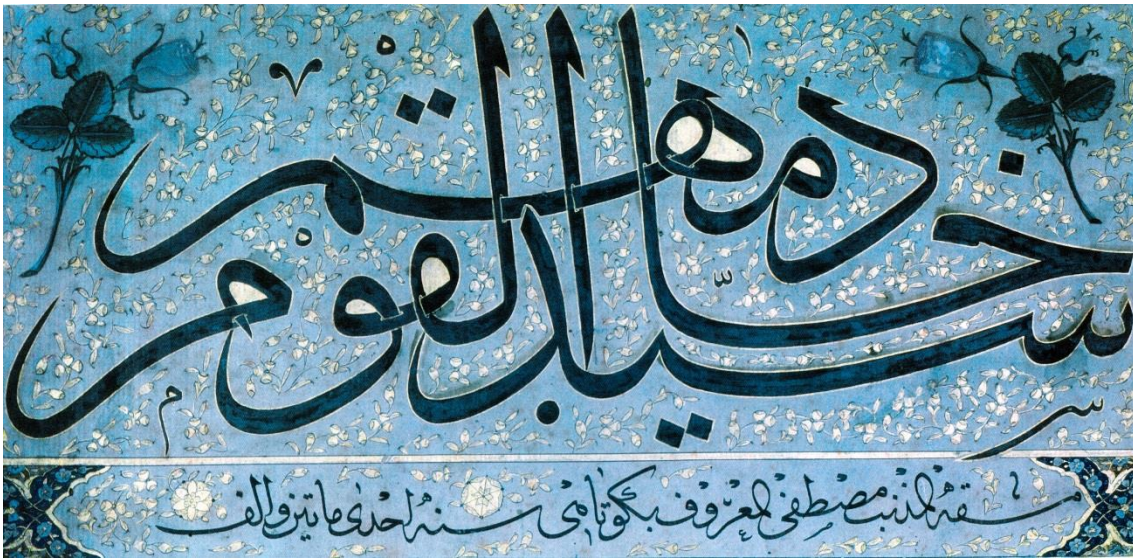 سيد القوم خادمهم
مشقه المذنب مصطفى المعروف بكوتاهى سنه احدى ماتين والف